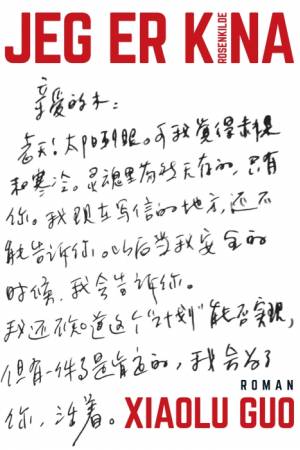 JEG ER KINA
ROSENKILDE
亲爱的木:
老天!太阳刺眼。可我觉得赤裸
和寒冷。灵魂里 无存的,只有
你。我现在写信的地方,还不
能告诉你。以后当我安全的
时候,我会告诉你。
我还不知道这个"计划"能否实现,
但有一件事是肯定的,我会为了
你,活着。
ROMAN
XIAOLU GUO